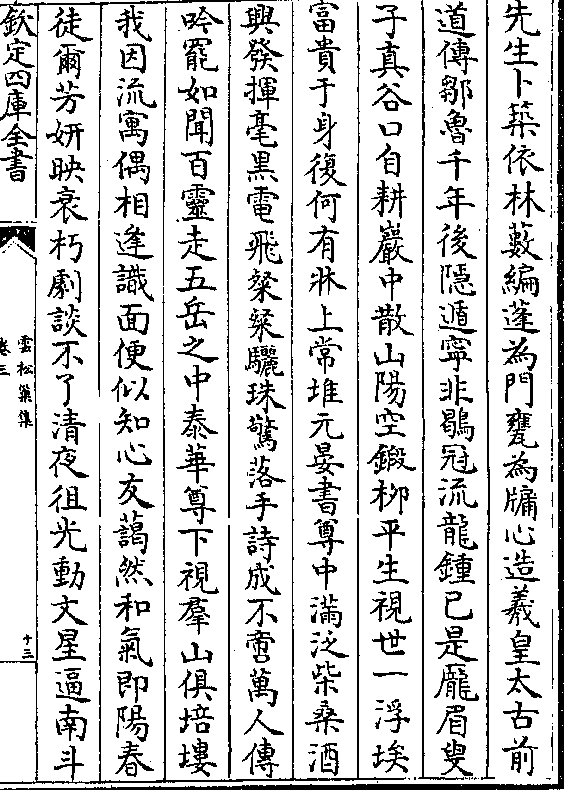 先生卜築依林藪編蓬為門甕為牖心造羲皇太古前
道傳鄒魯千年後隱遁寧非鶡冠流龍鍾已是龎眉叟
子真谷口自耕巖中散山陽空鍛柳平生視世一浮埃
富貴于身復何有牀上常堆元晏書尊中滿泛柴桑酒
興發揮毫黑電飛粲粲驪珠驚落手詩成不啻萬人傳
吟罷如聞百靈走五岳之中泰華尊下視羣山俱培塿
我因流寓偶相逢識面便似知心友藹然和氣即陽春
徒爾芳妍映衰朽劇談不了清夜徂光動文星逼南斗
欽定四庫全書
雲松巢集
卷三
十三